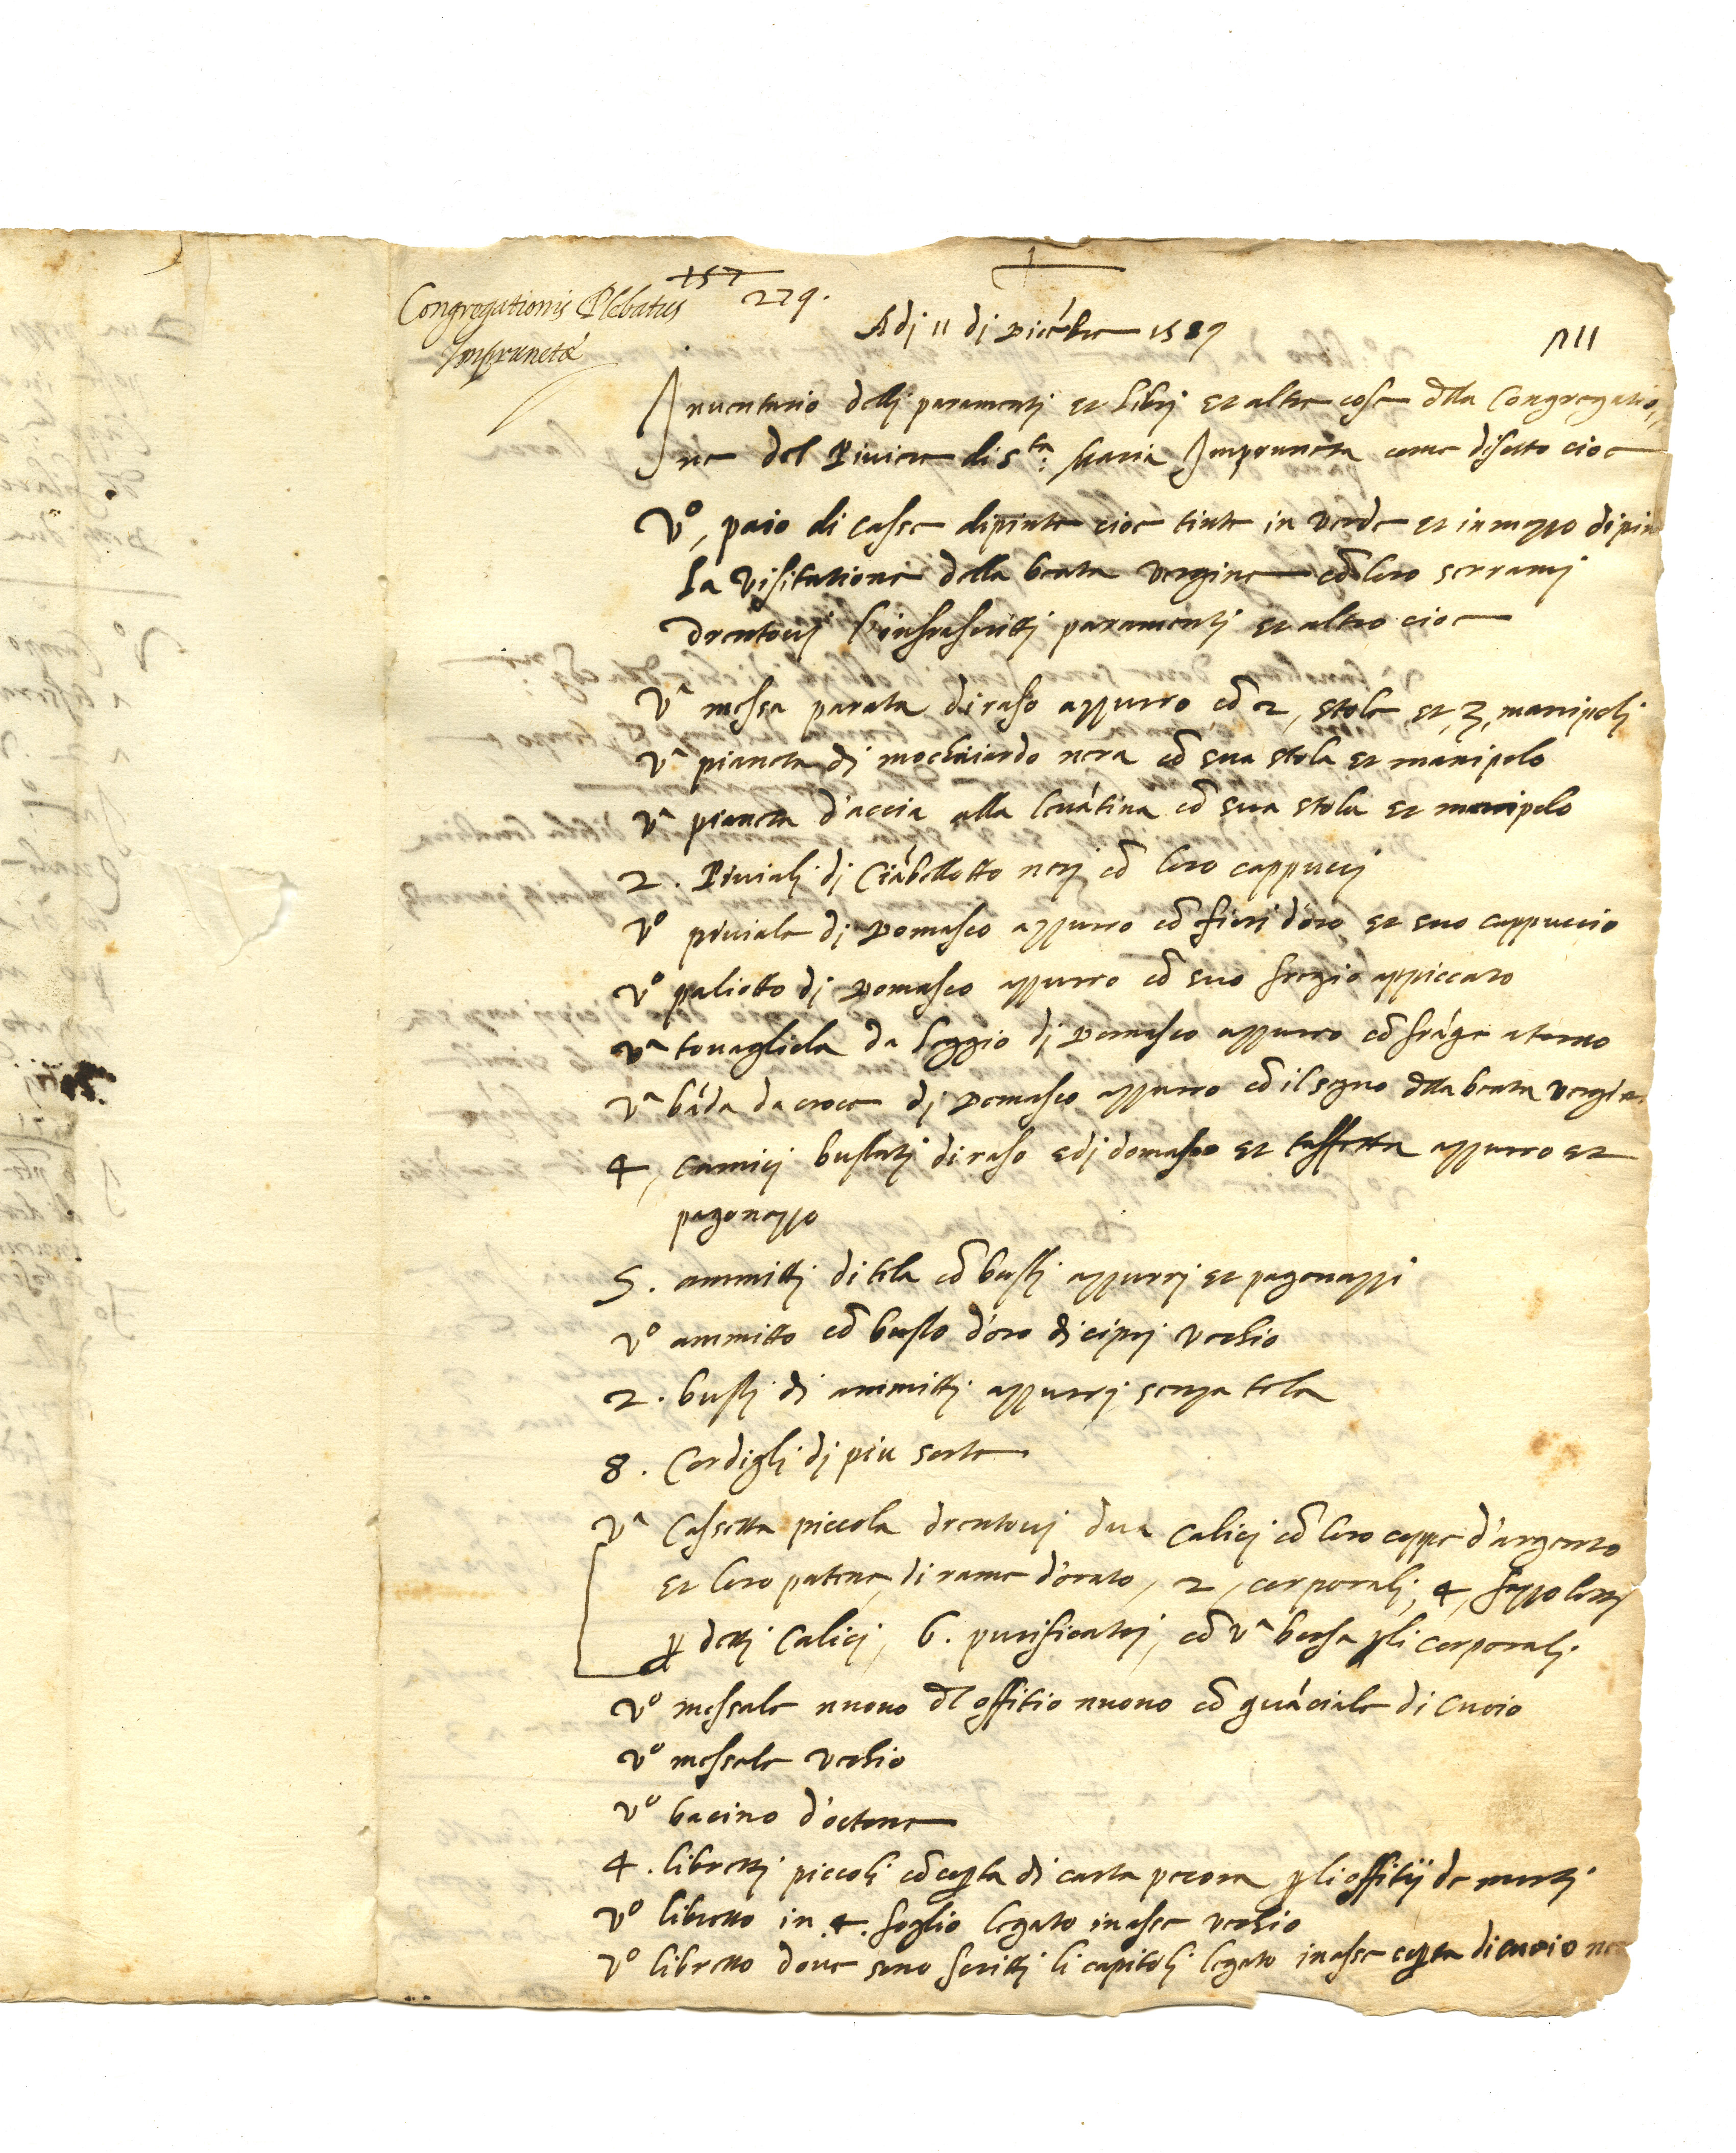 157
279.
Congregationis Plebatus
Imprunetæ
Adj 11 dj Dicébre 1589
Inuentario dellj paramentj et librj et altre cose dlla Congregatio,
ne del Piuiere di S.ta Maria Impruneta come disotto cioe
Vo, paio di casse dipinte cioe tinte in verde et in mezzo dipin
la Visitatione della beata vergine cō loro serramj
drentouj l'infrascritti paramentj et altro cioe
Va messa parata di raso azzurro cō 2, stole et 3, manipolj
va pianeta dj mochaiardo nera cō sua stola et manipolo
va pianeta d'accia alla leuātina cō sua stola et manipolo
2. Piuialj dj Ciābellotto nerj cō loro cappuccj
vo piuiale dj Domasco azzurro cō fiori d'oro et suo cappuccio
vo paliotto dj Domasco azzurro cō suo fregio appiccato
va touagliola da leggio dj Domasco azzurro cō frāge atorno
va bāda da croce dj Domasco azzurro cō il segno dlla beata vergine
4, camicj bustatj di raso e dj domasco et taffetta azzurro et
pagonazzo
5. ammittj di tela cō bustj azzurrj et pagonazzi
vo ammitto cō busto d'oro di ciprj vechio
2. bustj di ammittj azzurrj senza tela
8. Cordiglj dj piu sorte
va Cassetta piccola drentouj dua calicj cō loro coppe d'argento
et loro patene, di rame dorato, 2, corporalj, 4, fazzolettj
p dettj Calicj, 6. purificatoj, cō va borsa p li corporalj.
vo messale nuouo dl offitio nuouo cō guāciale di cuoio
vo messale vechio
vo bacino d'ottone
4. librettj piccolj cō coperta di carta pecora p li offitij de mortj
vo libretto in 4. foglio legato in asse vechio
vo libretto doue sono scrittj li capitolj legato in asse coperta di cuoio ne